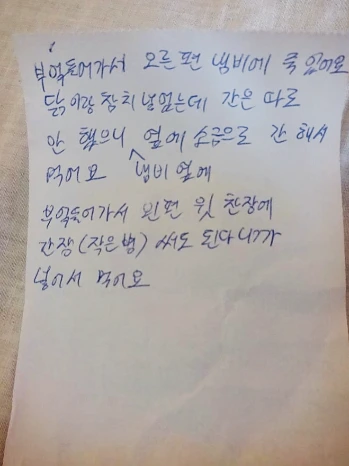 부엌들어가서 오른편 냄비에 죽 있어요
닭이랑 참치 넣었는데 간은 따로
안 했으니 옆에 소금으로 간 해서
먹어요 냄비 옆에
부엌들어가서 왼편 윗 찬장에
간쟁(작은병) 써도 된다니까
넣어서 먹어요